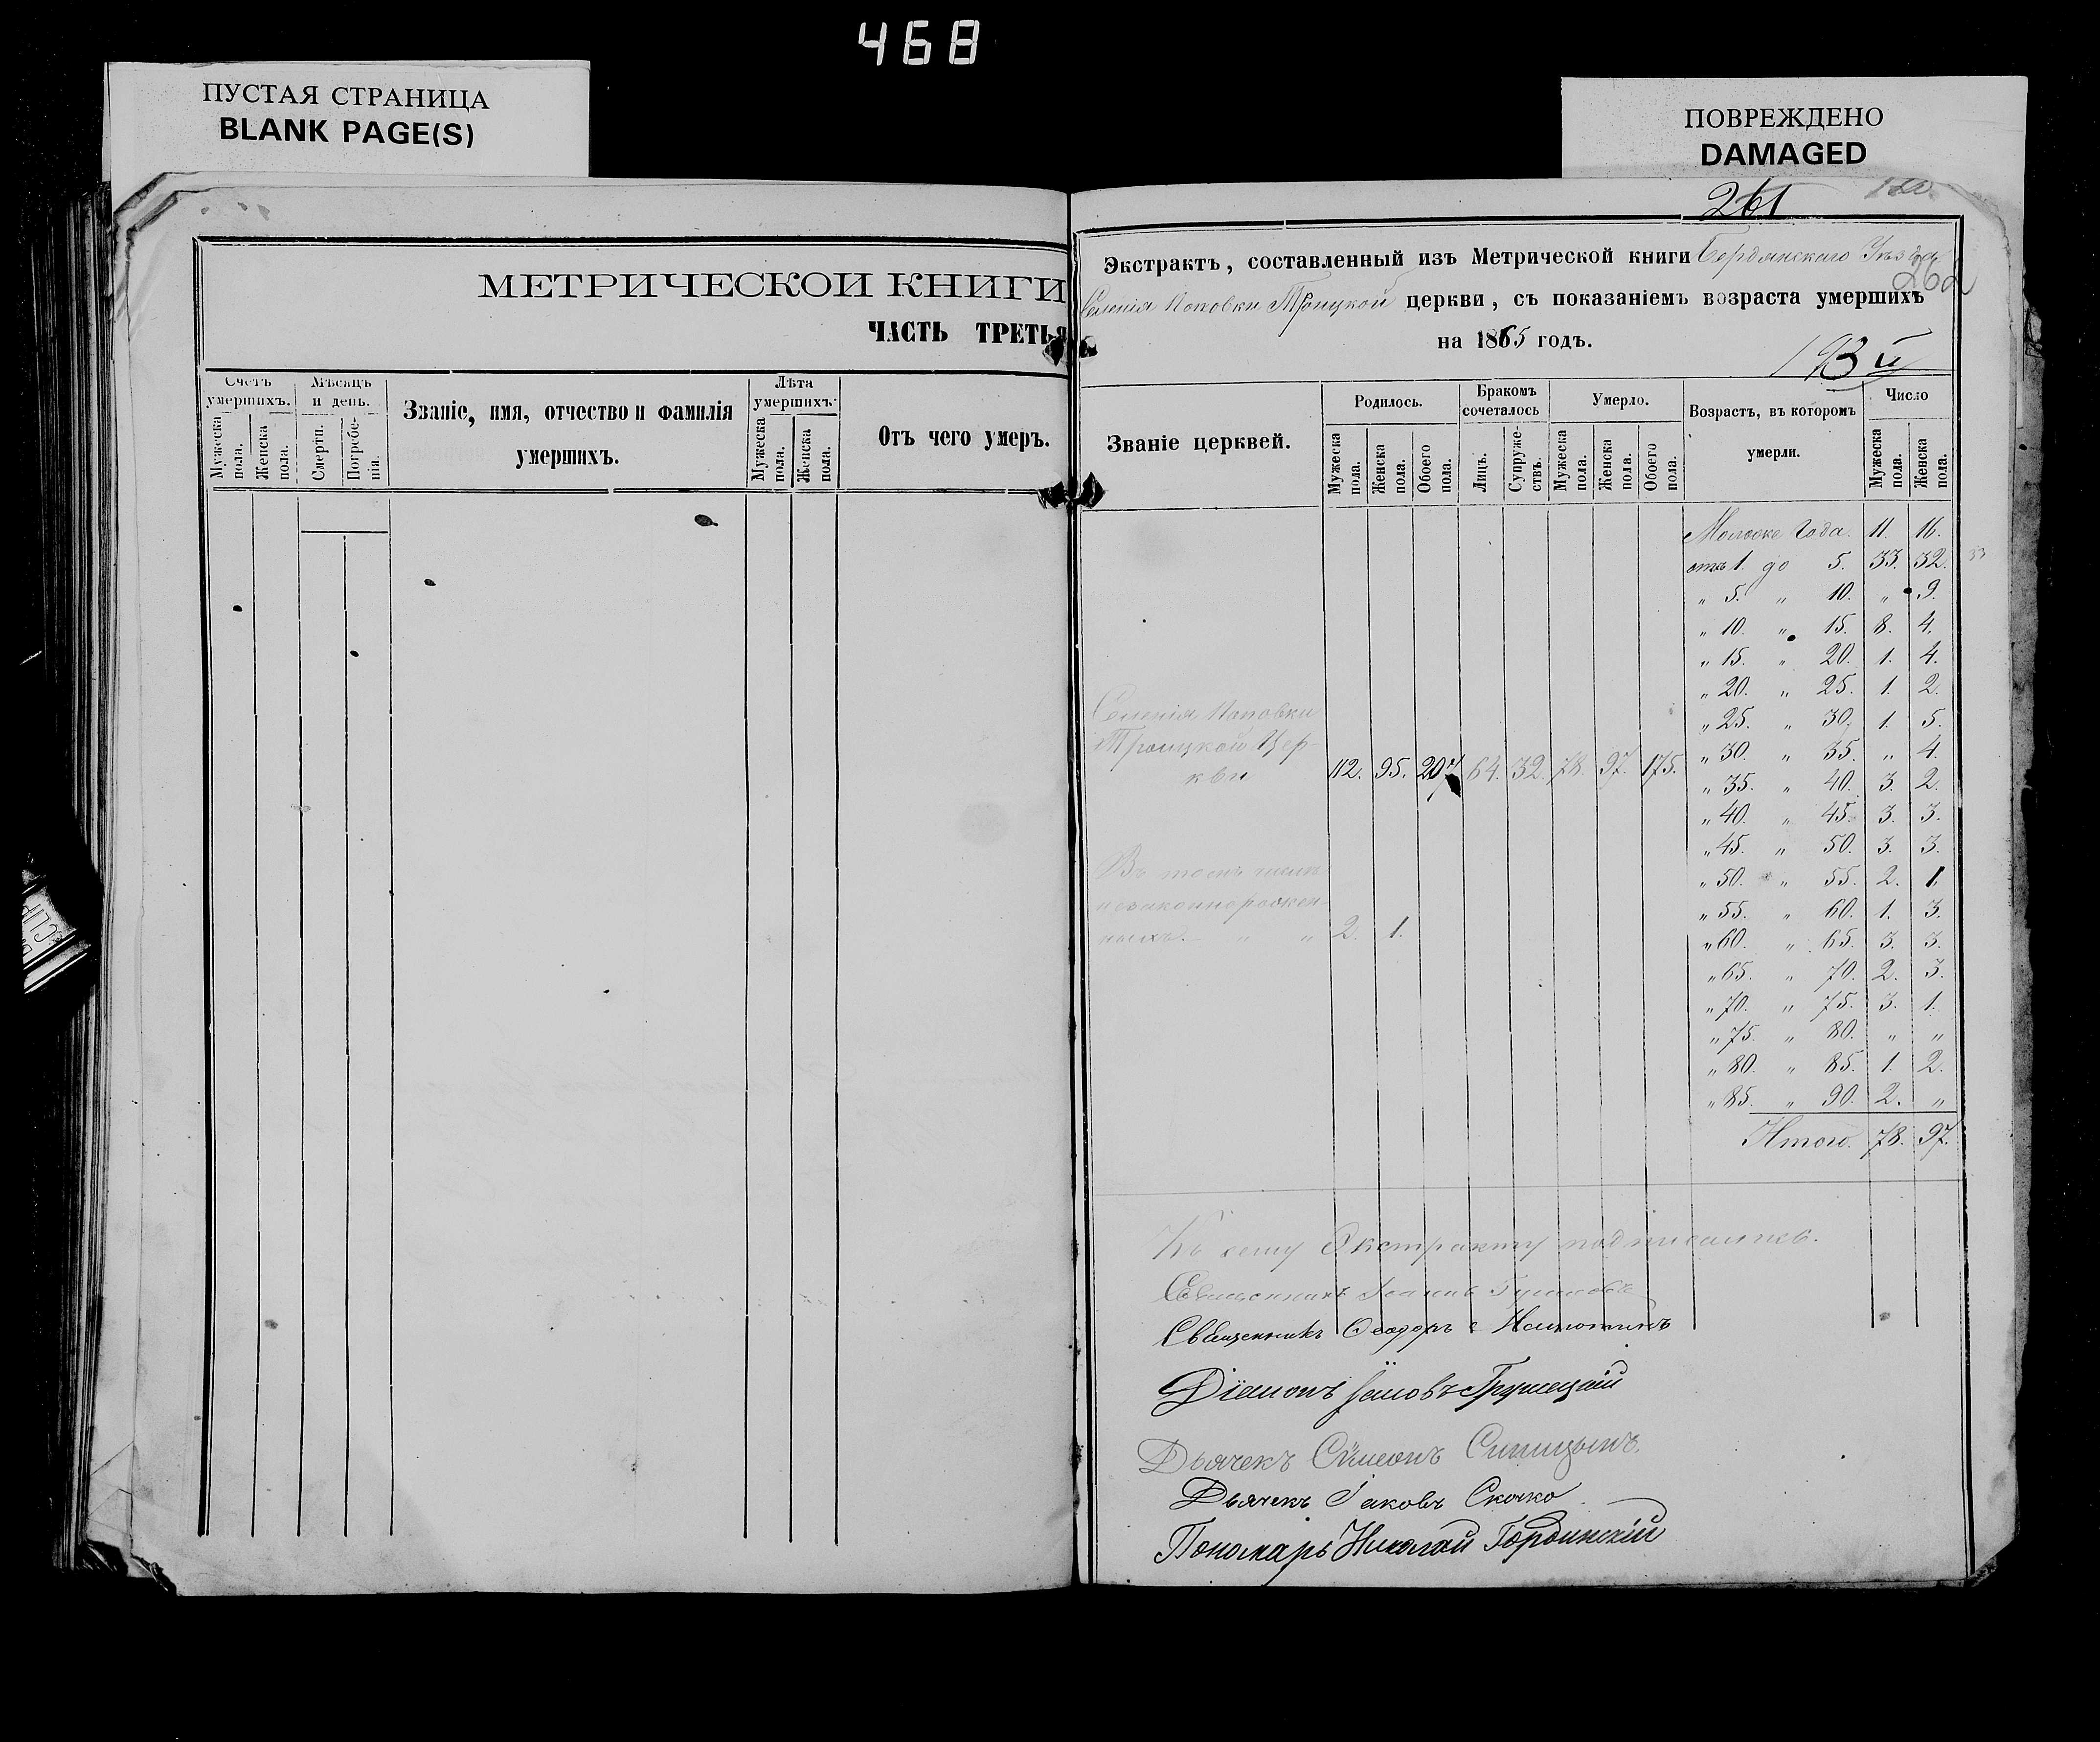 468
ПУСТАЯ СТРАНИЦА
BLANK PAGE(S)
ПОВРЕЖДЕНО
DAMAGED
МЕТРИЧЕСКОИ КНИГИ
ЧАСТЬ ТРЕТЬЯ
Счетъ умершихъ.
Мужеска пола.
Женска пола.
Мѣсяцъ и день.
Смерти.
Погребенія.
Званіе, имя, отчество и фамилія
умершихъ.
Лѣта умершихъ.
Мужеска пола.
Женска пола.
Отъ чего умеръ.
261
262
Экстрактъ, составленный изъ Метрической книги Бердянскаго Уѣзда
Селенія Поповки Троицкой церкви, съ показаніемъ возраста умершихъ
на 1865 годъ.
193 й
Званіе церквей.
Родилось.
Мужеска пола.
Женска пола.
Обоего пола.
Бракомъ сочеталось
Лицъ.
Супружествъ.
Умерло.
Мужеска пола.
Женска пола.
Обоего пола.
Возрастъ, въ которомъ
умерли.
Число
Мужеска пола.
Женска пола.
Моложе Года. 11. 16.
отъ 1. до 5. 33. 32.
„ 5. „ 10. „ 9.
„ 10. „ 15. 8. 4.
„ 15. „ 20. 1. 4.
„ 20. „ 25. 1. 2.
„ 25. „ 30. 1. 5.
„ 30. „ 35. „ 4.
„ 35. „ 40. 3. 2.
„ 40. „ 45. 3. 3.
„ 45. „ 50. 3. 3.
„ 50. „ 55. 2. 1.
„ 55. „ 60. 1. 3.
„ 60. „ 65. 3. 3.
„ 65. „ 70. 2. 3.
„ 70. „ 75. 3. 1.
„ 75. „ 80. „ „
„ 80. „ 85. 1. 2.
„ 85. „ 90. 2. „
Итого. 78. 97.
Селенія Поповки
Троицкой Цер-
кви 112. 95. 207. 64. 32. 78. 97. 175.
Въ томъ числѣ
незаконнорожден-
ныхъ. „ „ 2. 1.
Къ сему Экстракту подписались.
Священникъ Іоаннъ
Священникъ Ѳеодоръ
Діаконъ Іаковъ Грушецкій
Дьячекъ Сѵмеонъ Синицынъ.
Дьячекъ Іаковъ Скочко
Пономарь Николай Гординскій